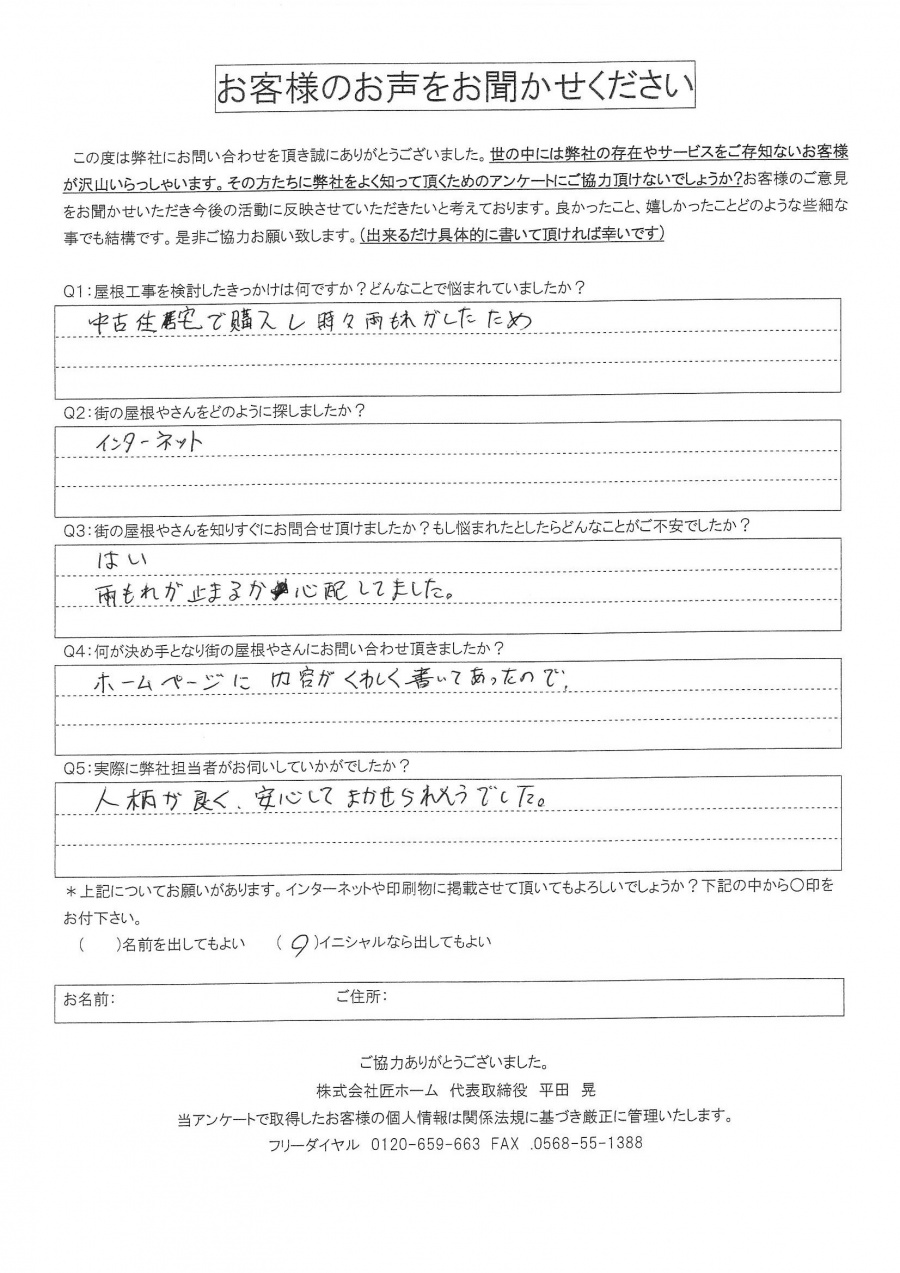 お客様のお声をお聞かせください
この度は弊社にお問い合わせを頂き誠にありがとうございました。世の中には弊社の存在やサービスをご存知ないお客様
が沢山いらっしゃいます。その方たちに弊社をよく知って頂くためのアンケートにご協力頂けないでしょうか?お客様のご意見
をお聞かせいただき今後の活動に反映させていただきたいと考えております。良かったこと、嬉しかったことどのような些細な
事でも結構です。是非ご協力お願い致します。(出来るだけ具体的に書いて頂ければ幸いです)
Q1:屋根工事を検討したきっかけは何ですか?どんなことで悩まれていましたか?
中古住宅で購入し時々雨もれがしたため
Q2:街の屋根やさんをどのように探しましたか?
インターネット
Q3:街の屋根やさんを知りすぐにお問合せ頂けましたか?もし悩まれたとしたらどんなことがご不安でしたか?
はい
雨もれが止まるか心配してました。
Q4:何が決め手となり街の屋根やさんにお問い合わせ頂きましたか?
ホームページに内容がくわしく書いてあったので、
Q5:実際に弊社担当者がお伺いしていかがでしたか?
人柄が良く、安心してまかせられそうでした。
*上記についてお願いがあります。インターネットや印刷物に掲載させて頂いてもよろしいでしょうか?下記の中から〇印を
お付下さい。
( )名前を出してもよい (○)イニシャルなら出してもよい
お名前: ご住所:
ご協力ありがとうございました。
株式会社匠ホーム 代表取締役 平田 晃
当アンケートで取得したお客様の個人情報は関係法規に基づき厳正に管理いたします。
フリーダイヤル 0120-659-663 FAX .0568-55-1388